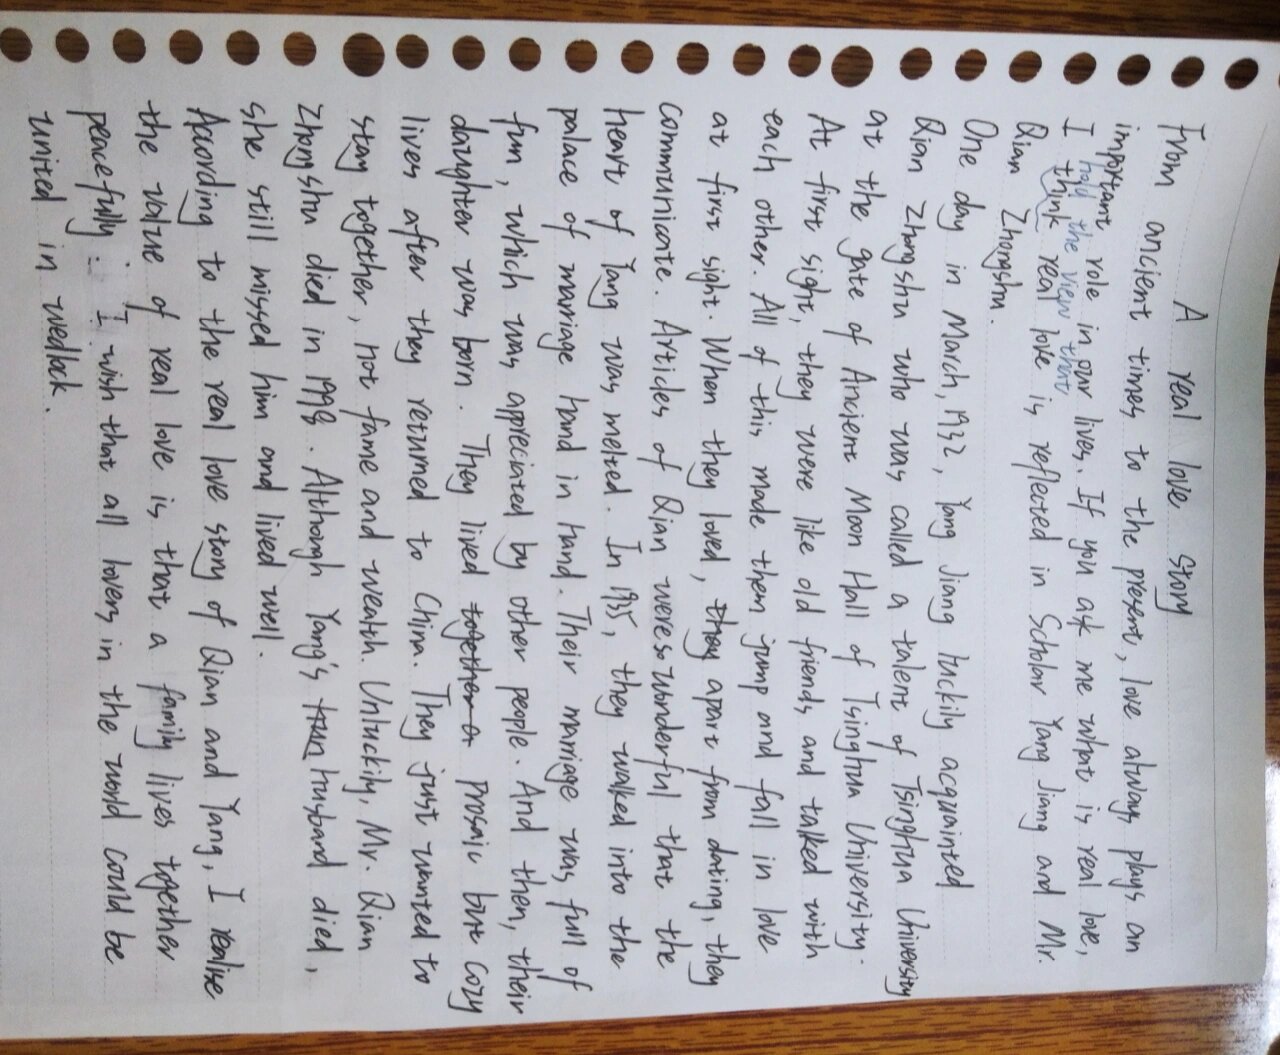 A real love story
From ancient times to the present, love always plays an
important role in our lives. If you ask me what is real love,
hold the view that
I think real love is reflected in Scholar Yang Jiang and Mr.
Qian Zhongshu.
One day in March, 1932, Yang Jiang luckily acquainted
Qian Zhongshu who was called a talent of Tsinghua University
at the gate of Ancient Moon Hall of Tsinghua University.
At first sight, they were like old friends and talked with
each other. All of this made them jump and fall in love
at first sight. When they loved, they apart from dating, they
communicate. Articles of Qian were so wonderful that the
heart of Yang was melted. In 1935, they walked into the
palace of marriage hand in hand. Their marriage was full of
fun, which was appreciated by other people. And then, their
daughter was born. They lived together a prosaic but cozy
lives after they returned to China. They just wanted to
stay together, not fame and wealth. Unluckily, Mr. Qian
Zhongshu died in 1998. Although Yang's husband died,
she still missed him and lived well.
According to the real love story of Qian and Yang, I realise
the value of real love is that a family lives together
peacefully. I wish that all lovers in the world could be
united in wedlock.